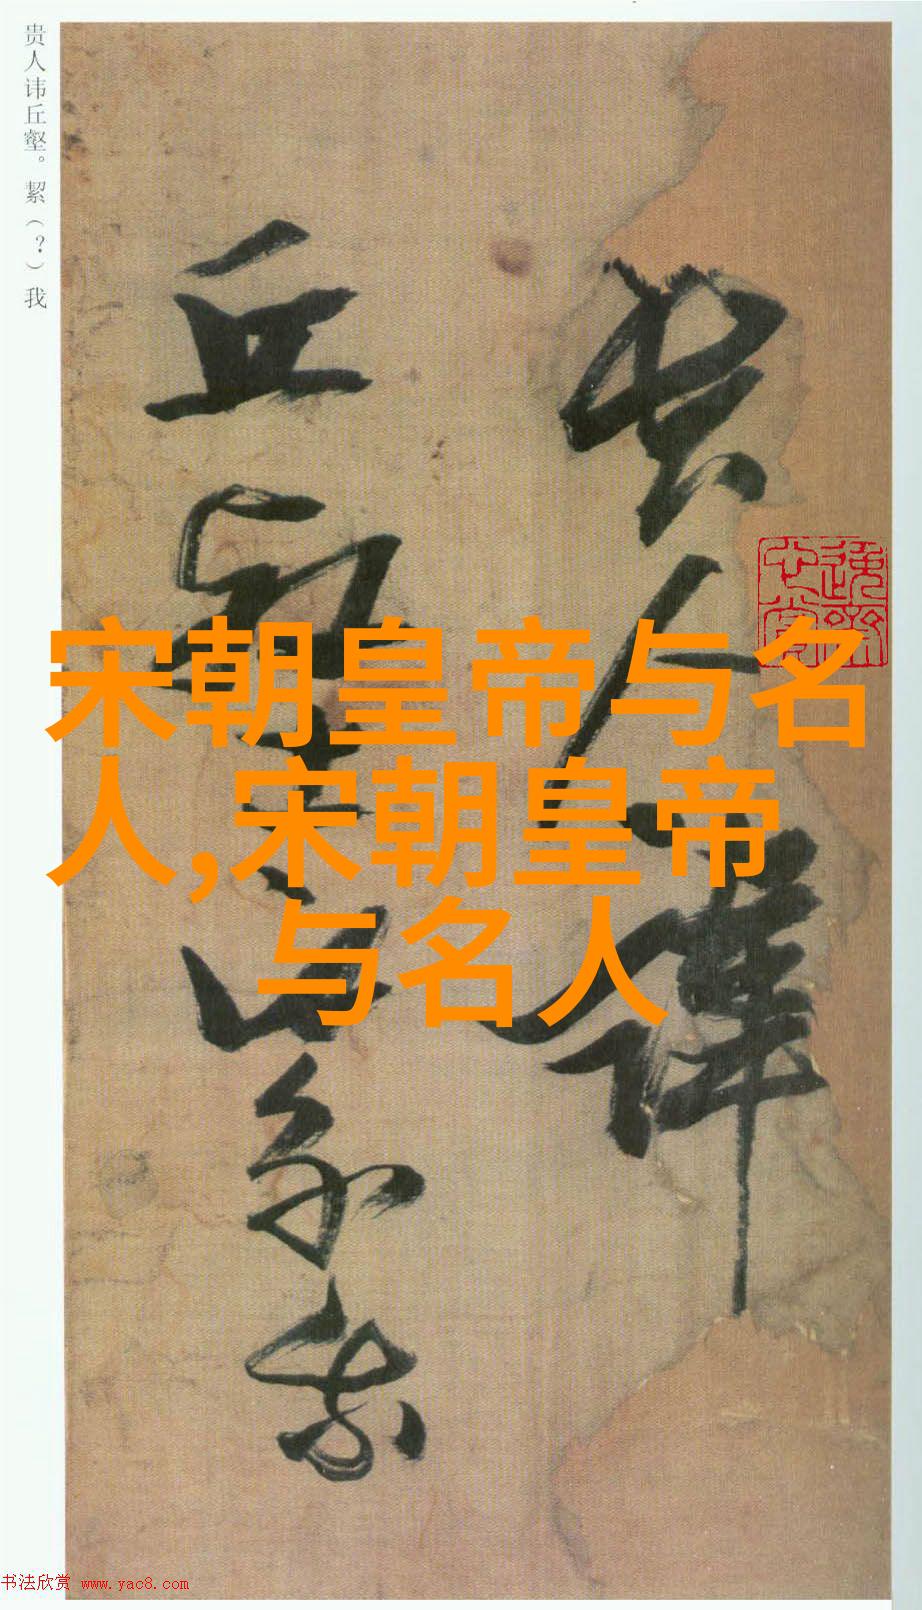 贵人讳丘壑。絜（？）我
宋朝皇帝与名
人,宋朝皇帝
与名人
贵人讳
丘壑絜我
书法欣赏 www.yac8.com